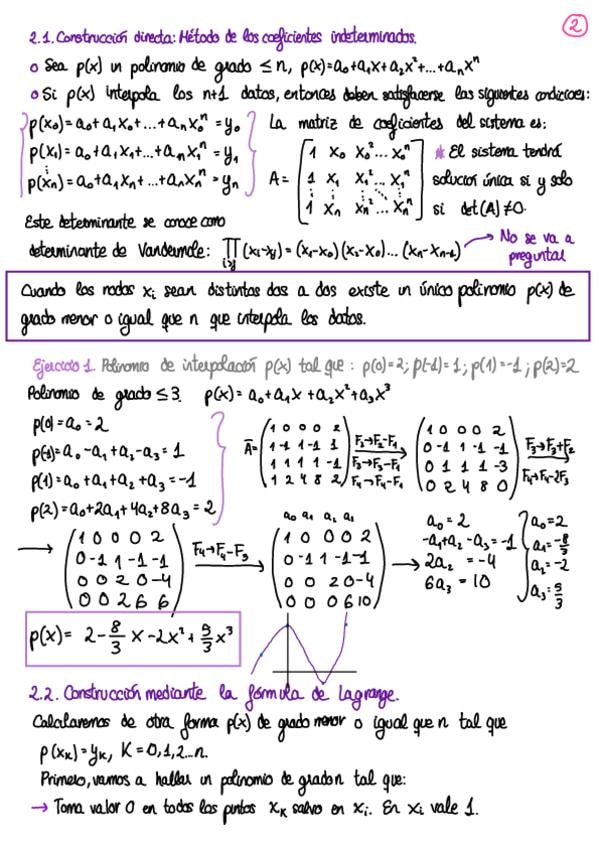 2
2.1. Construcción directa: Método de los coeficientes indeterminados.
o Sea p(x) un polinomio de grado ≤ n, p(x)=a₀+a₁x+a₂x²+...+aₙxⁿ
o Si p(x) interpola los n+1 datos, entonces deben satisfacerse las siguientes condiciones:
p(x₀)=a₀+a₁x₀+...+aₙx₀ⁿ = y₀ La matriz de coeficientes del sistema es:
p(x₁)=a₀+a₁x₁+...+aₙx₁ⁿ = y₁
⋮
p(xₙ)=a₀+a₁xₙ+...+aₙxₙⁿ = yₙ
A=
1 x₀ x₀² ... x₀ⁿ
1 x₁ x₁² ... x₁ⁿ
⋮ ⋮ ⋮ ⋮
1 xₙ xₙ² ... xₙⁿ
* El sistema tendrá
solución única si y solo
si det(A)≠0.
Este determinante se conoce como
determinante de Vandermole: ∏ (xᵢ-xⱼ)=(x₁-x₀)(x₂-x₀)...(xₙ-xₙ₋₁) → No se va a
i>j
preguntar
Cuando los nodos xᵢ sean distintos dos a dos existe un único polinomio p(x) de
grado menor o igual que n que interpola los datos.
Ejercicio 1. Polinomio de interpolación p(x) tal que: p(0)=2; p(-1)=1; p(1)=-1; p(2)=2
Polinomio de grado ≤3. p(x)= a₀+a₁x+a₂x²+a₃x³
p(0)=a₀=2
p(-1)=a₀-a₁+a₂-a₃=1
p(1)=a₀+a₁+a₂+a₃=-1
p(2)=a₀+2a₁+4a₂+8a₃=2
Ā=
1 0 0 0 2
1 -1 1 -1 1
1 1 1 1 -1
1 2 4 8 2
F₂→F₂-F₁
F₃→F₃-F₁
F₄→F₄-F₁
1 0 0 0 2
0 -1 1 -1 -1
0 1 1 1 -3
0 2 4 8 0
F₃→F₃+F₂
F₄→F₄-2F₃
→
1 0 0 0 2
0 -1 1 -1 -1
0 0 2 0 -4
0 0 2 6 6
F₄→F₄-F₃
a₀ a₁ a₂ a₃
1 0 0 0 2
0 -1 1 -1 -1
0 0 2 0 -4
0 0 0 6 10
→
a₀ = 2
-a₁+a₂-a₃=-1
2a₂ = -4
6a₃ = 10
a₀=2
a₁=-8/3
a₂=-2
a₃=5/3
p(x)= 2-8/3 x-2x²+5/3 x³
2.2. Construcción mediante la fórmula de Lagrange.
Calcularemos de otra forma p(x) de grado menor o igual que n tal que
p(xₖ)=yₖ, K=0,1,2...n.
Primero, vamos a hallar un polinomio de grado n tal que:
→ Toma valor 0 en todos los puntos xₖ salvo en xᵢ. En xᵢ vale 1.